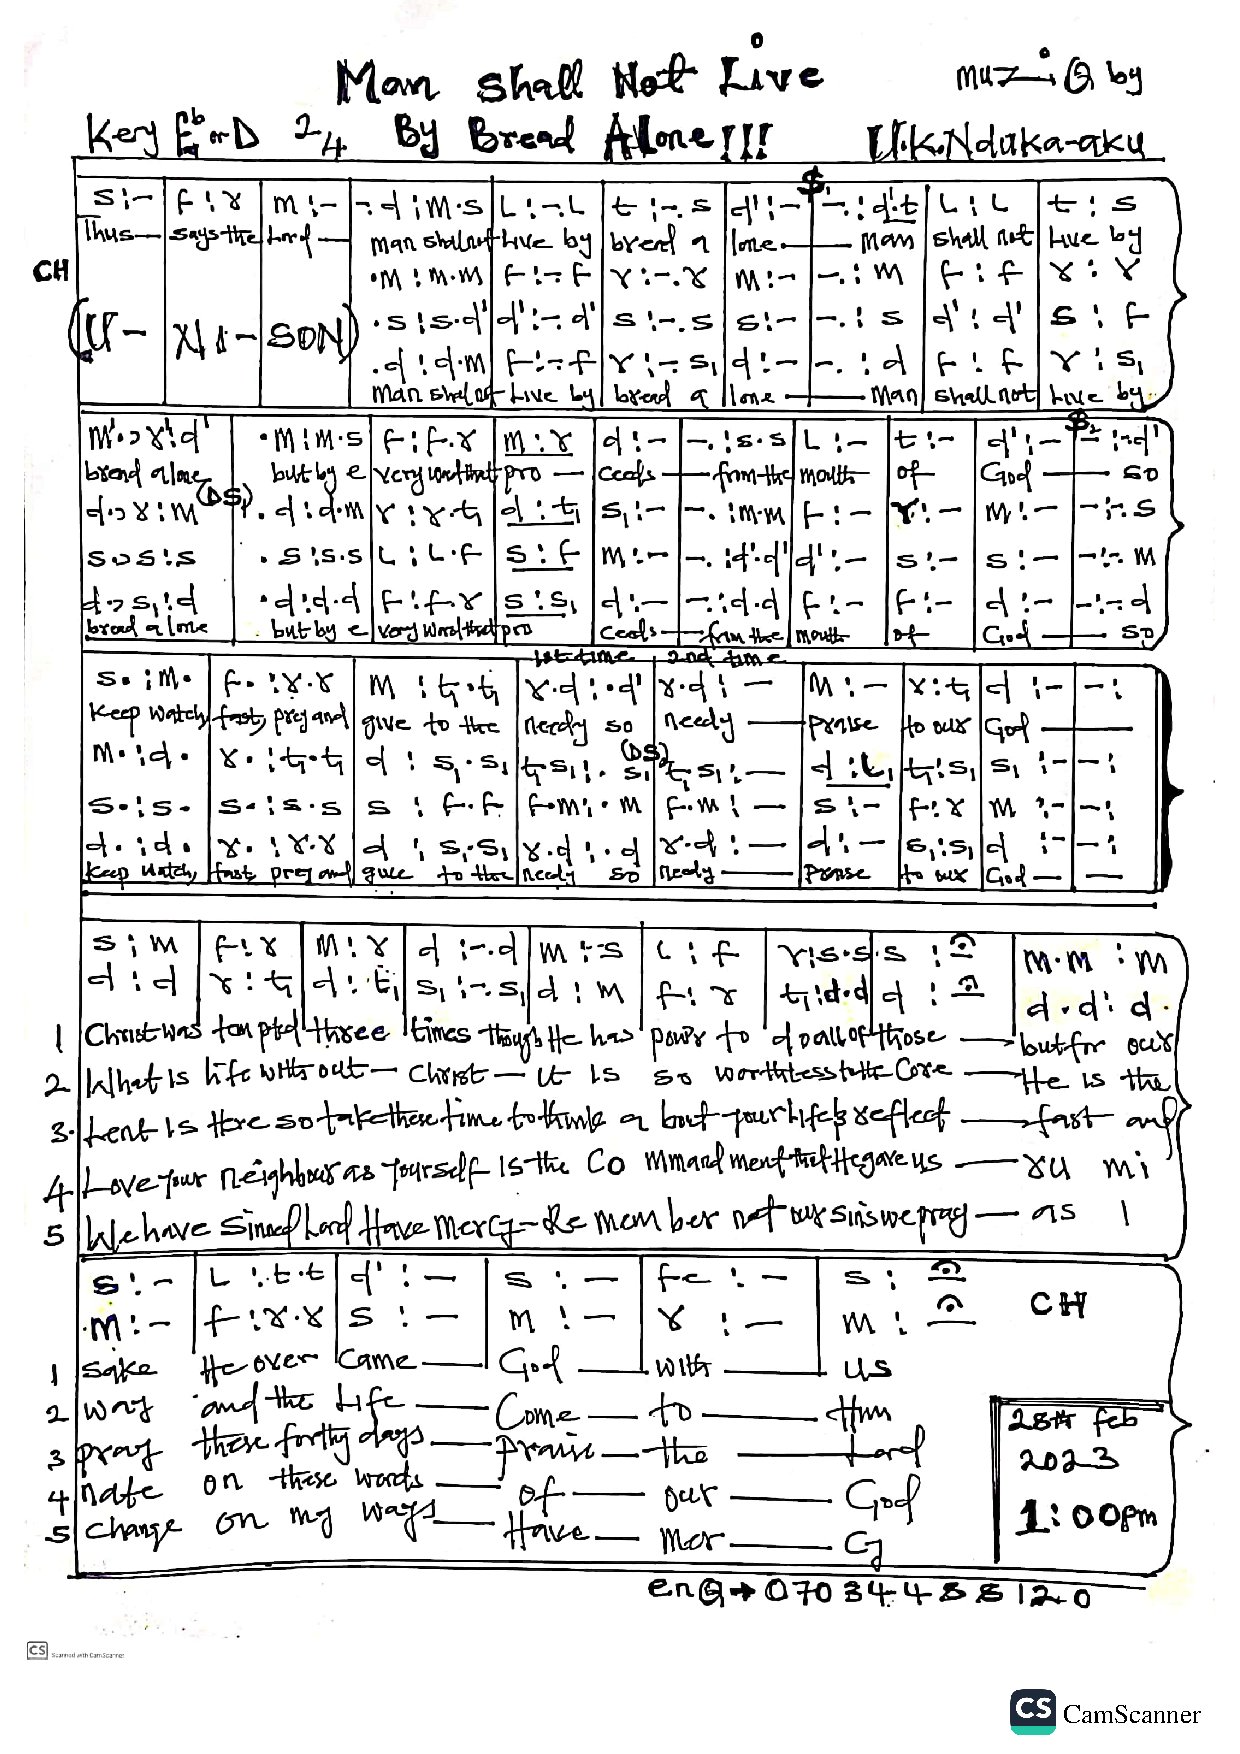 Man Shall Not Live muziQ by
Key Eb or D 2/4 By Bread Alone!!! U.K.Nduka-aku
s :- | f : r | m :- | -.d : m.s | L :-.L | t :-.s | d' :- | -. : d'.t | L : L | t : s
Thus— says the Lord— man shall not Live by bread a lone.—— man shall not Live by
CH
.m : m.m | f :- f | r :-.r | m :- | -. : m | f : f | r : r
(U- NI- SON)
.s : s.d' | d' :-. d' | s :-.s | s :- | -. : s | d' : d' | s : f
.d : d.m | f :- f | r :-.s₁ | d :- | -. : d | f : f | r : s₁
man shall not Live by bread a lone —— Man shall not Live by
m'.,r' : d' | .m : m.s | f : f.r | m : r | d :- | -. : s.s | L :- | t :- | d' :- | - :-.d'
bread alone but by e very word that pro— ceeds—— from the mouth of God —— so
d.,r : m (DS₁) | . d : d.m | r : r.t₁ | d : t₁ | s₁ :- | -. : m.m | f :- | r :- | m :- | - :-. s
s.,s : s | . s : s.s | L : L.f | s : f | m :- | -. : d'.d' | d' :- | s :- | s :- | - :-. m
d.,s₁ : d | .d : d.d | f : f.r | s : s₁ | d :- | -. : d.d | f :- | f :- | d :- | - :-. d
bread alone but by e very word that pro ceeds—— from the mouth of God —— so
1st time 2nd time
s. : m. | f. : r.r | m : t₁.t₁ | r.d : .d' | r.d : — | m :- | r : t₁ | d :- | - :
Keep watch, fast, pray and give to the needy so needy —— praise to our God ——
m. : d. | r. : t₁.t₁ | d : s₁.s₁ | t₁.s₁ : . s₁ (DS₂) | t₁.s₁ : — | d : L₁ | t₁ : s₁ | s₁ :- | - :
s. : s. | s. : s.s | s : f.f | f.m : . m | f.m : — | s :- | f : r | m :- | - :
d. : d. | r. : r.r | d : s₁.s₁ | r.d : .d | r.d : — | d :- | s₁ : s₁ | d :- | - :
Keep watch, fast pray and give to the needy so needy —— Praise to our God — —
s : m | f : r | m : r | d :-.d | m :-s | L : f | r : s.s | s : | m.m : m
d : d | r : t₁ | d : t₁ | s₁ :-.s₁ | d : m | f : r | t₁ : d.d | d : | d.d : d.
1 Christ was tempted three times though He has power to do all of those —— but for our
2 What is life without— Christ— it is so worthless to the Core —— He is the
3. Lent is Here so take these time to think a bout your life & reflect —— fast and
4 Love your neighbour as yourself is the Co mmand ment that He gave us —— ru mi
5 We have sinned Lord Have Mercy— Re mem ber not our sins we pray — as I
s :- | L : t.t | d' :— | s :— | fe :— | s : CH
.m :- | f : r.r | s :— | m :— | r :— | m :
1 sake He over came —— God —— with —— us
2 way and the Life —— Come — to —— Him
3 pray these forthy days —— praise — the —— Lord
4 nate on these words —— of —— our —— God
5 change on my ways —— Have — mer —— cy
28th feb
2023
1:00pm
enQ→07034488120
CS Scanned with CamScanner
CS CamScanner